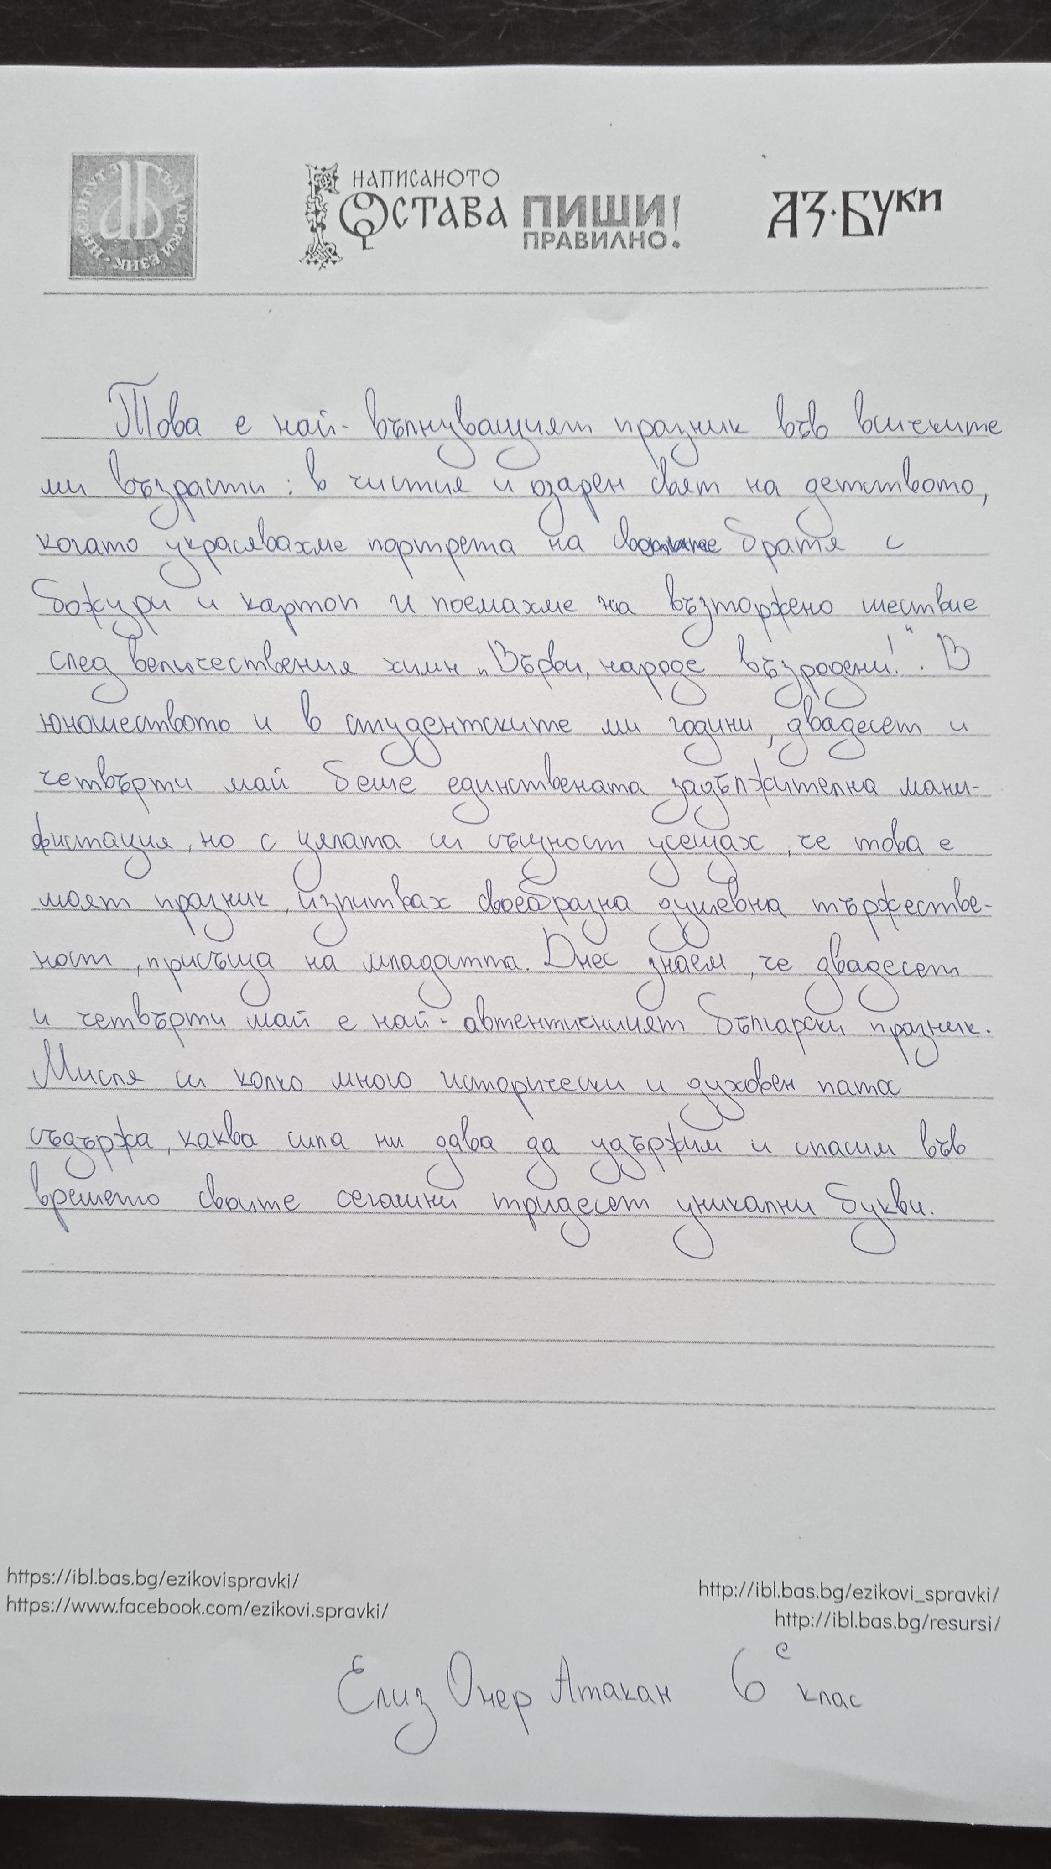 НАПИСАНОТО
ОСТАВА
ПИШИ!
ПРАВИЛНО.
АЗ·БУКИ
Това е най-вълнуващият празник във всичките
ми възрасти: в чистия и озарен свят на детството,
когато украсявахме портрета на братя с
божури и картон и поемахме на възторжено шествие
след величествения химн „Върви, народе възродени!“. В
юношеството и в студентските ми години, двадесет и
четвърти май беше единствената задължителна мани-
фистация, но с цялата си същност усещах, че това е
моят празник, изпитвах своеобразна душевна тържестве-
ност, присъща на младостта. Днес знаем, че двадесет
и четвърти май е най-автентичният български празник.
Мисля си колко много исторически и духовен патос
съдържа, каква сила ни одва да удържим и спасим във
времето своите сегашни тридесет уникални букви.
https://ibl.bas.bg/ezikovispravki/
https://www.facebook.com/ezikovi.spravki/
http://ibl.bas.bg/ezikovi_spravki/
http://ibl.bas.bg/resursi/
Елиз Онер Атакан 6е клас